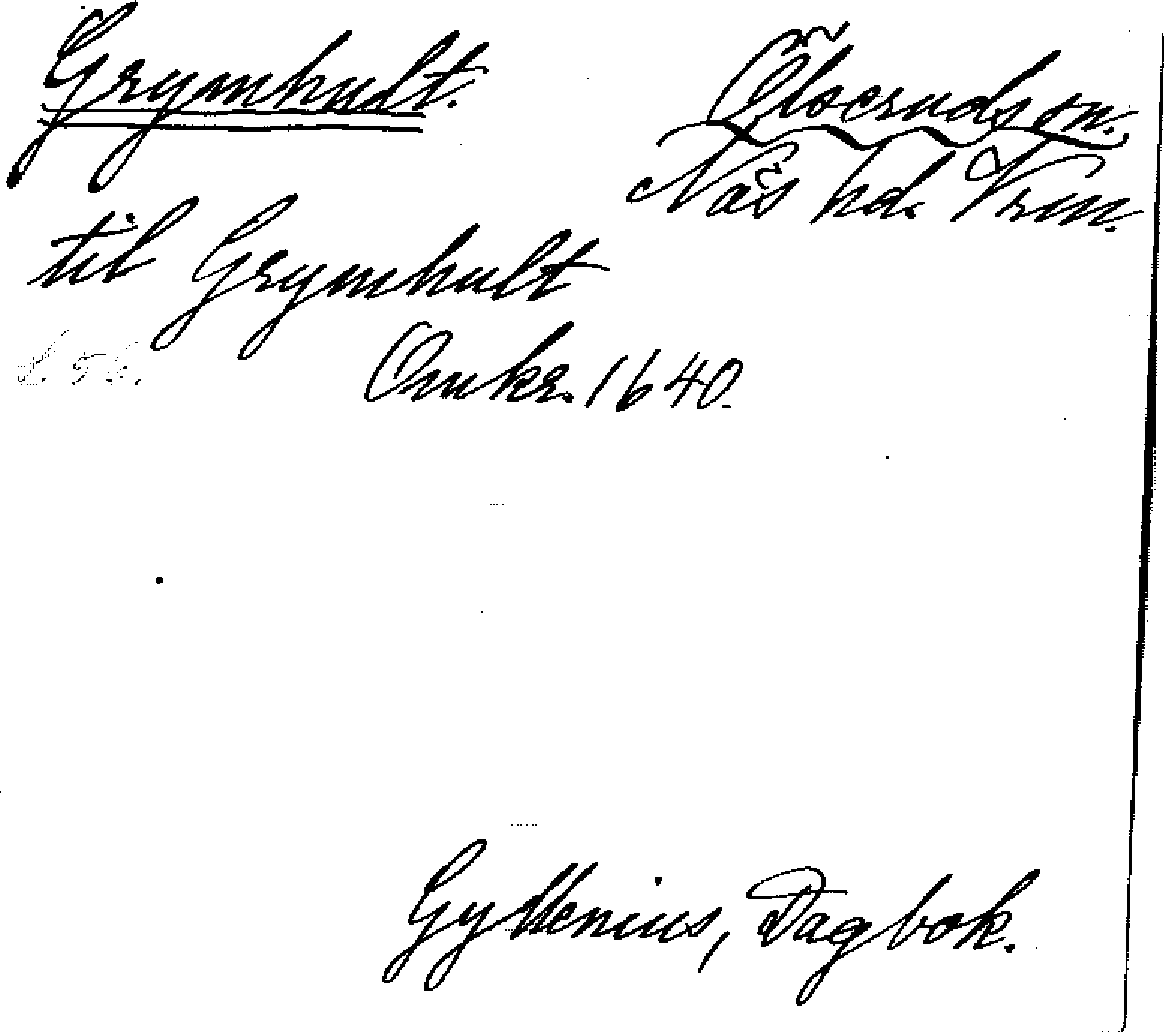 Grymhult.
Ölseruds sn.
Näs hd. Vrm.
til Grymhult
Omkr. 1640.
Gyllenius, Dagbok.